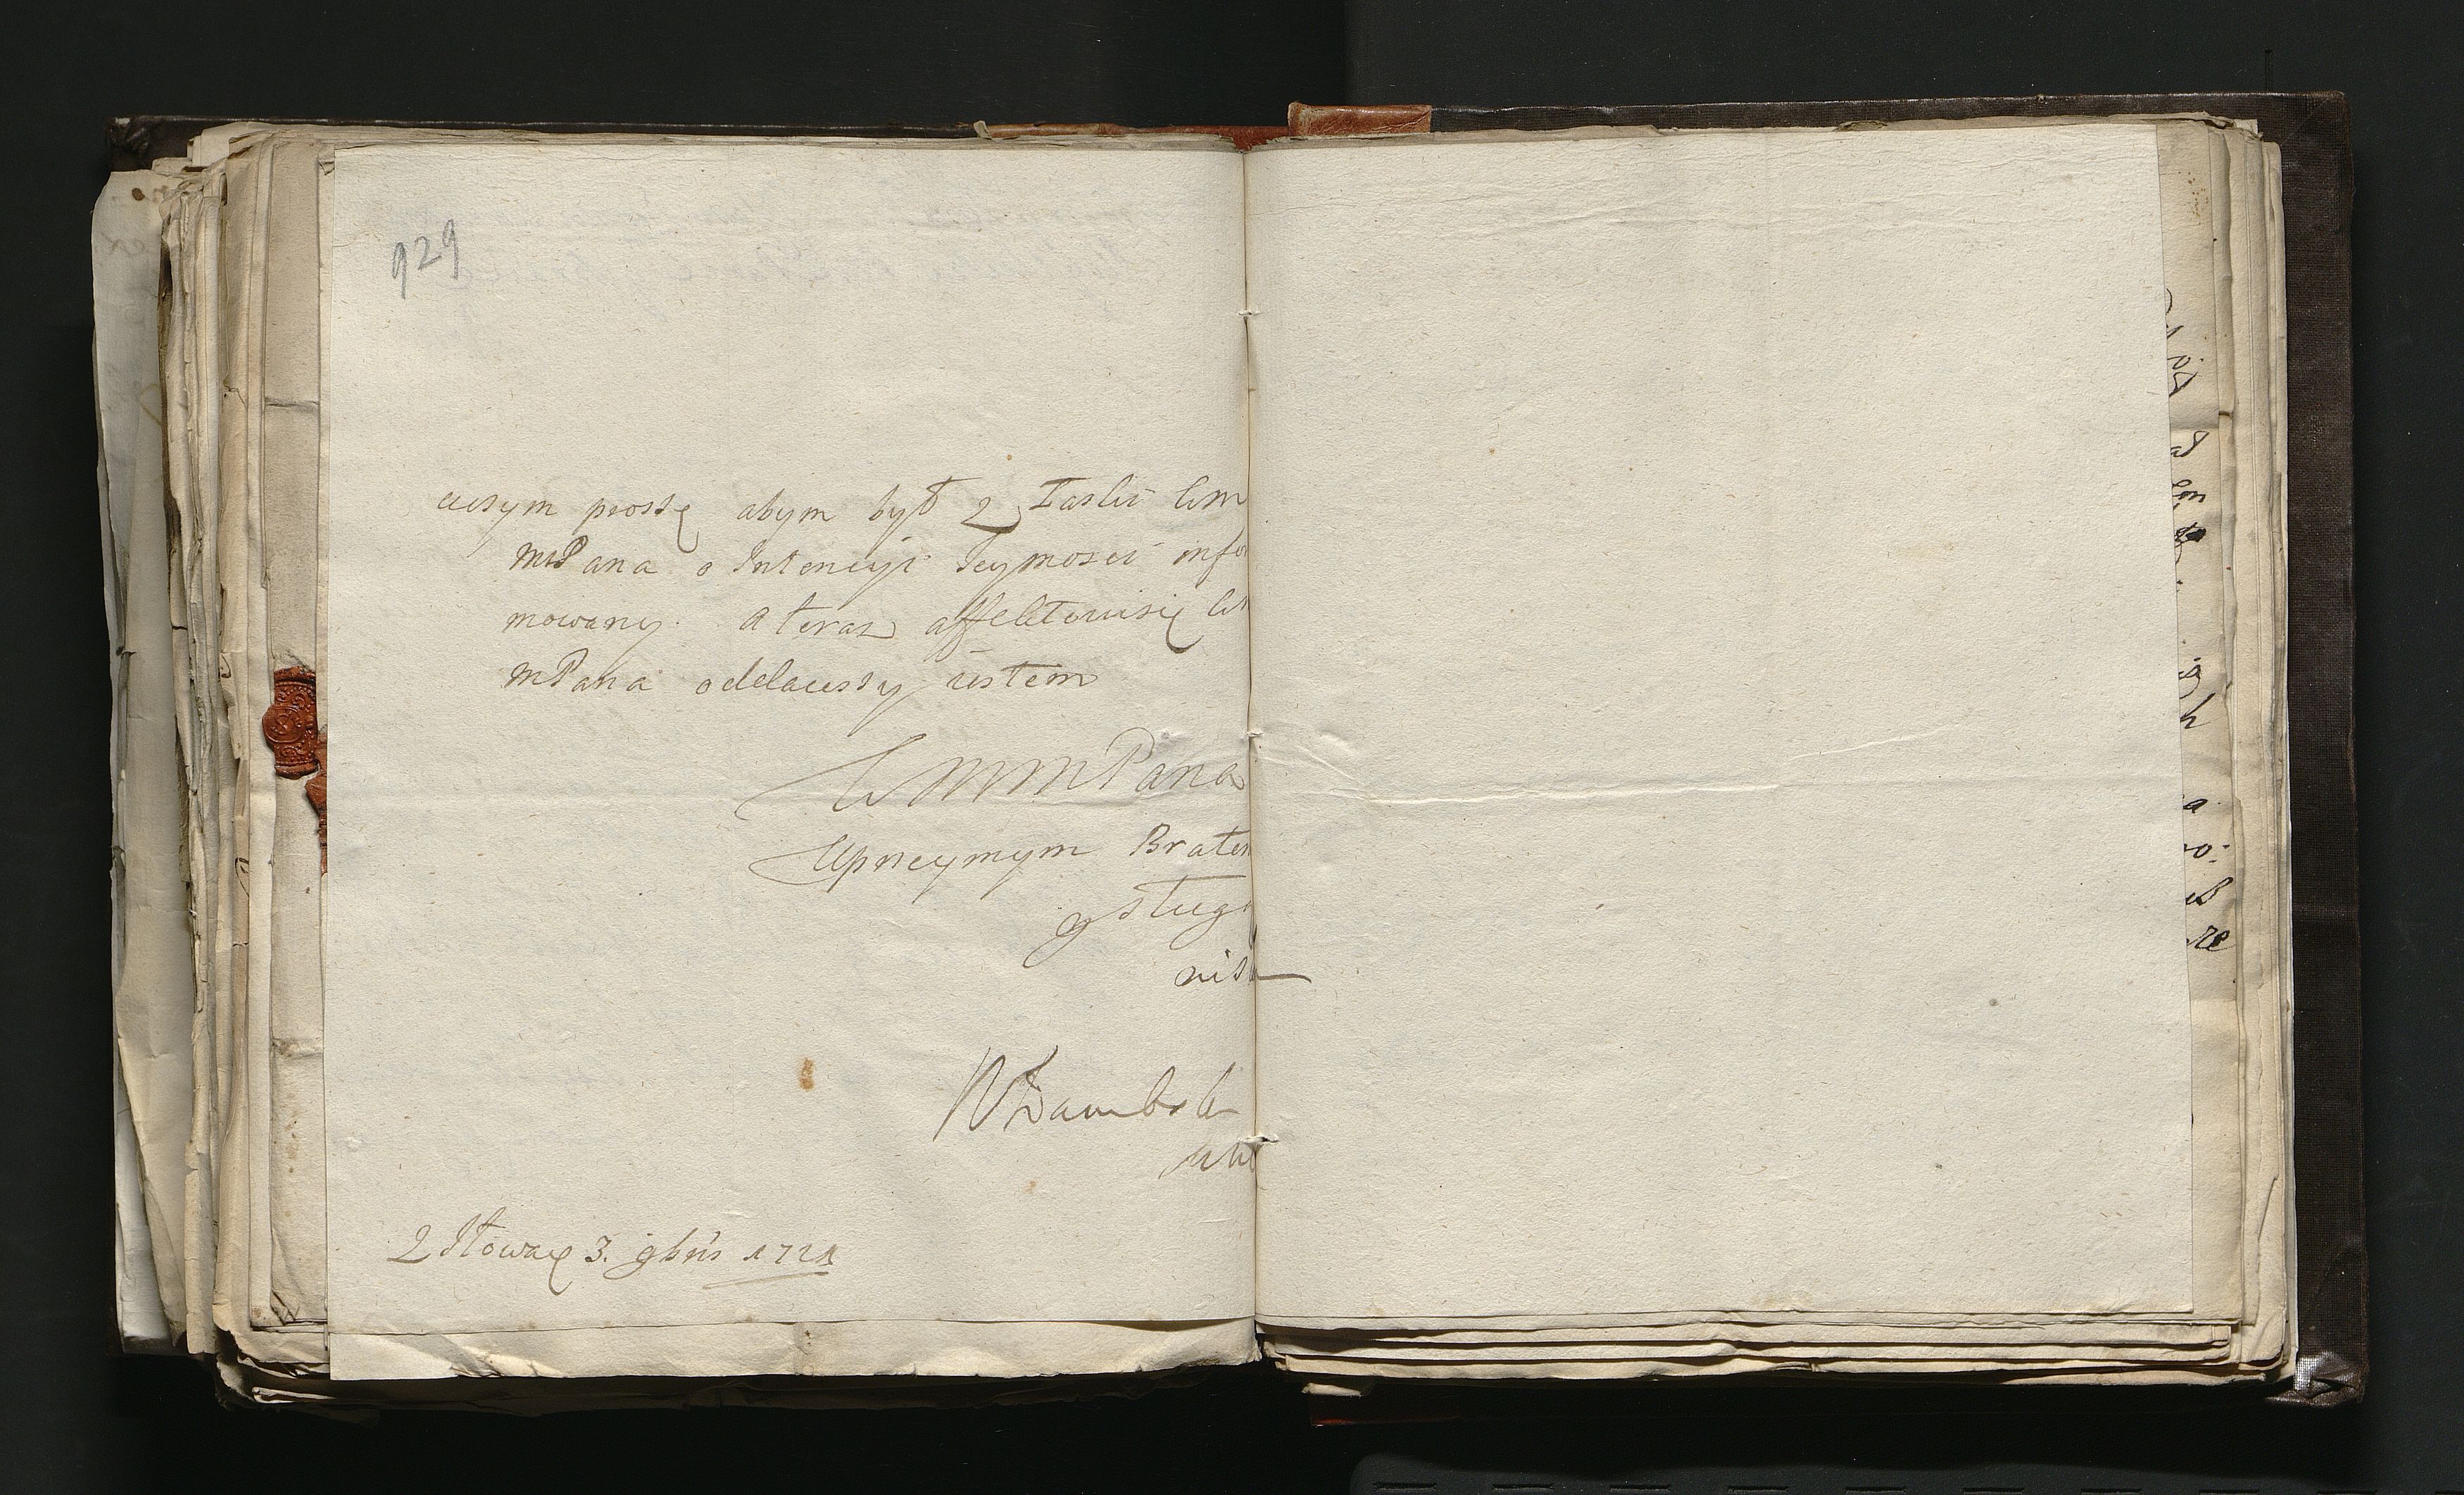 929
cuszym proszę abym był z Łaski Wm
MPana o Intencyi Jeymosci infor
mowany. A teraz affektowisię W
MPana oddawszy iestem
WMMPana
Upreymym Bratem
y sług
nisk
WDambsk
2 Iłowa 3. 9bris 1721